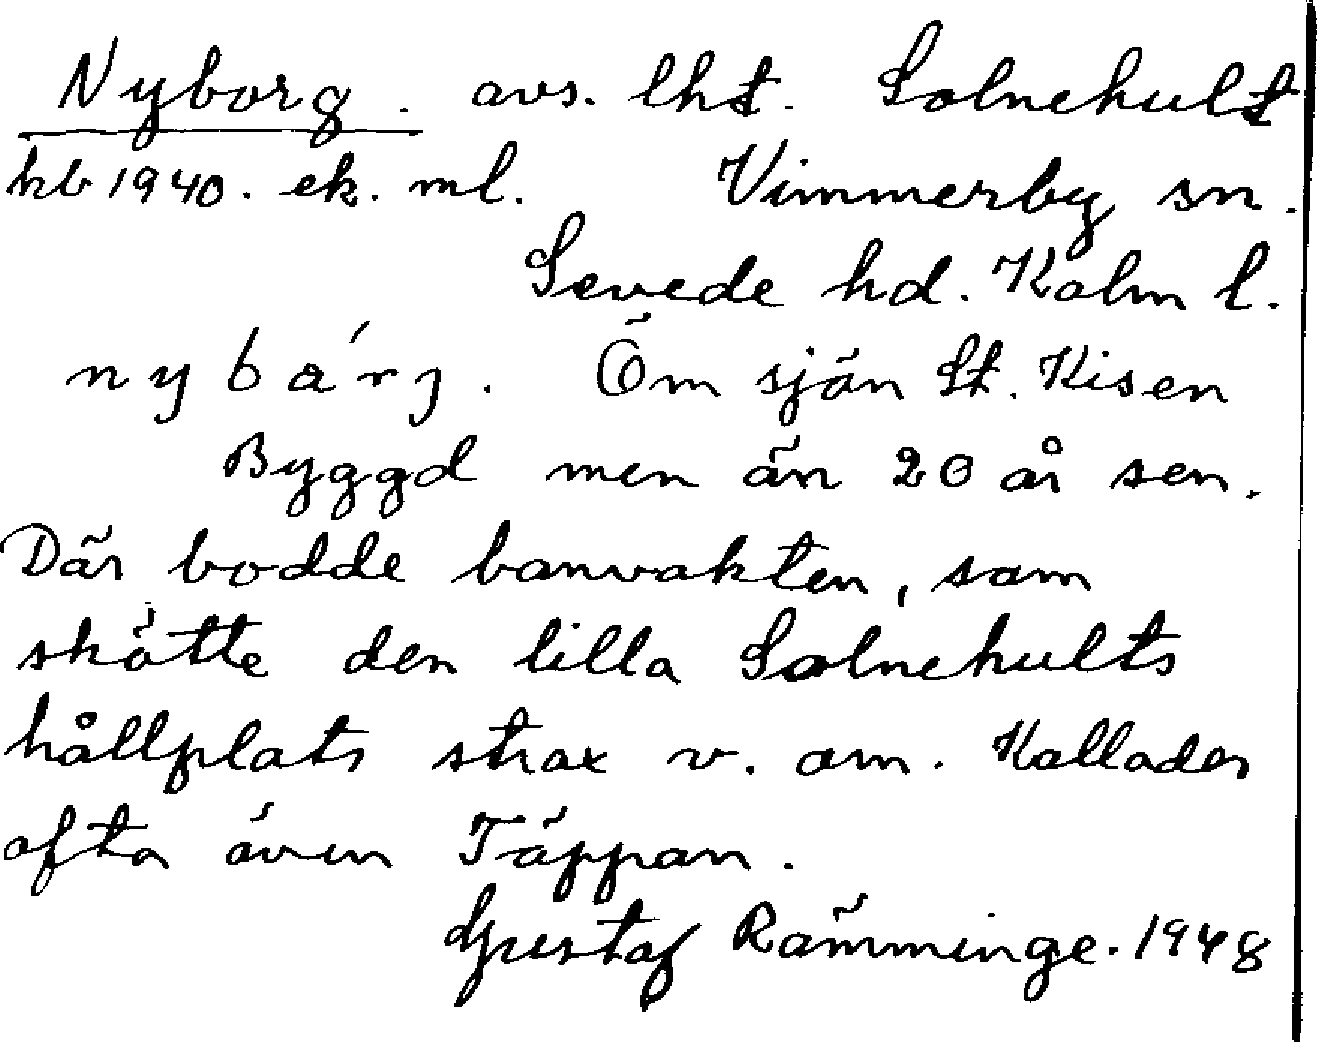 Nyborg. avs. lht. Solnehult
kb 1940. ek. ml. Vimmerby sn.
Sevede hd. Kalm l.
nybárj. Öm sjön St. Kisen
Byggd men än 20 år sen.
Där bodde banvakten, som
skötte den lilla Solnehults
hållplats strax v. om. Kallades
ofta även Täppan.
Gustaf Rämminge. 1948